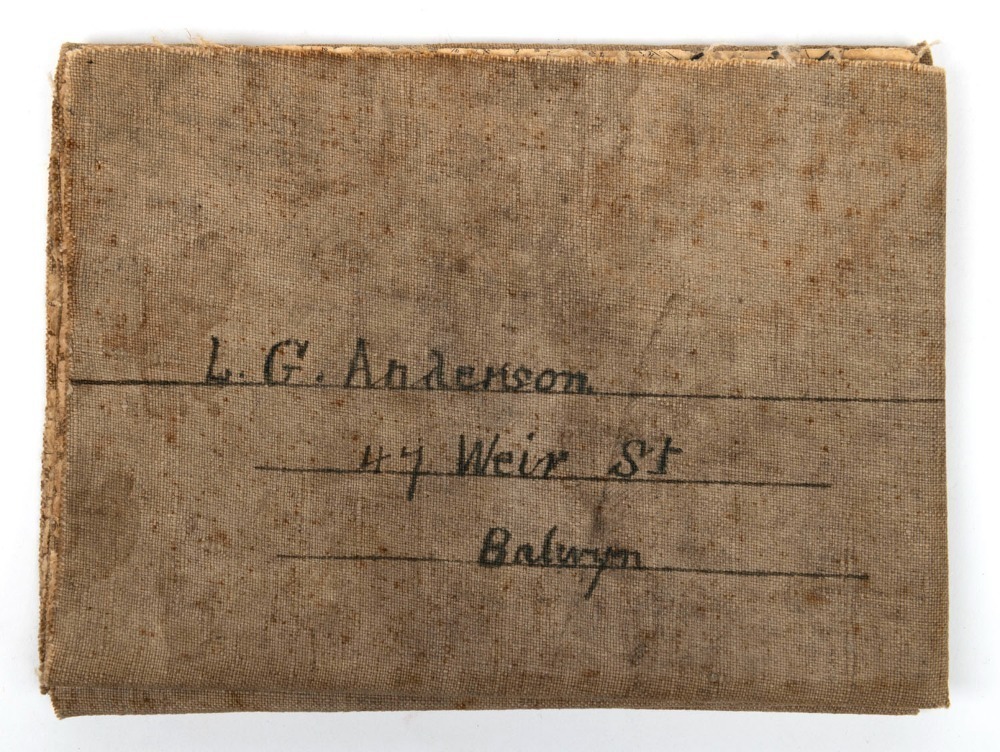 L. G. Anderson
47 Weir St
Balwyn